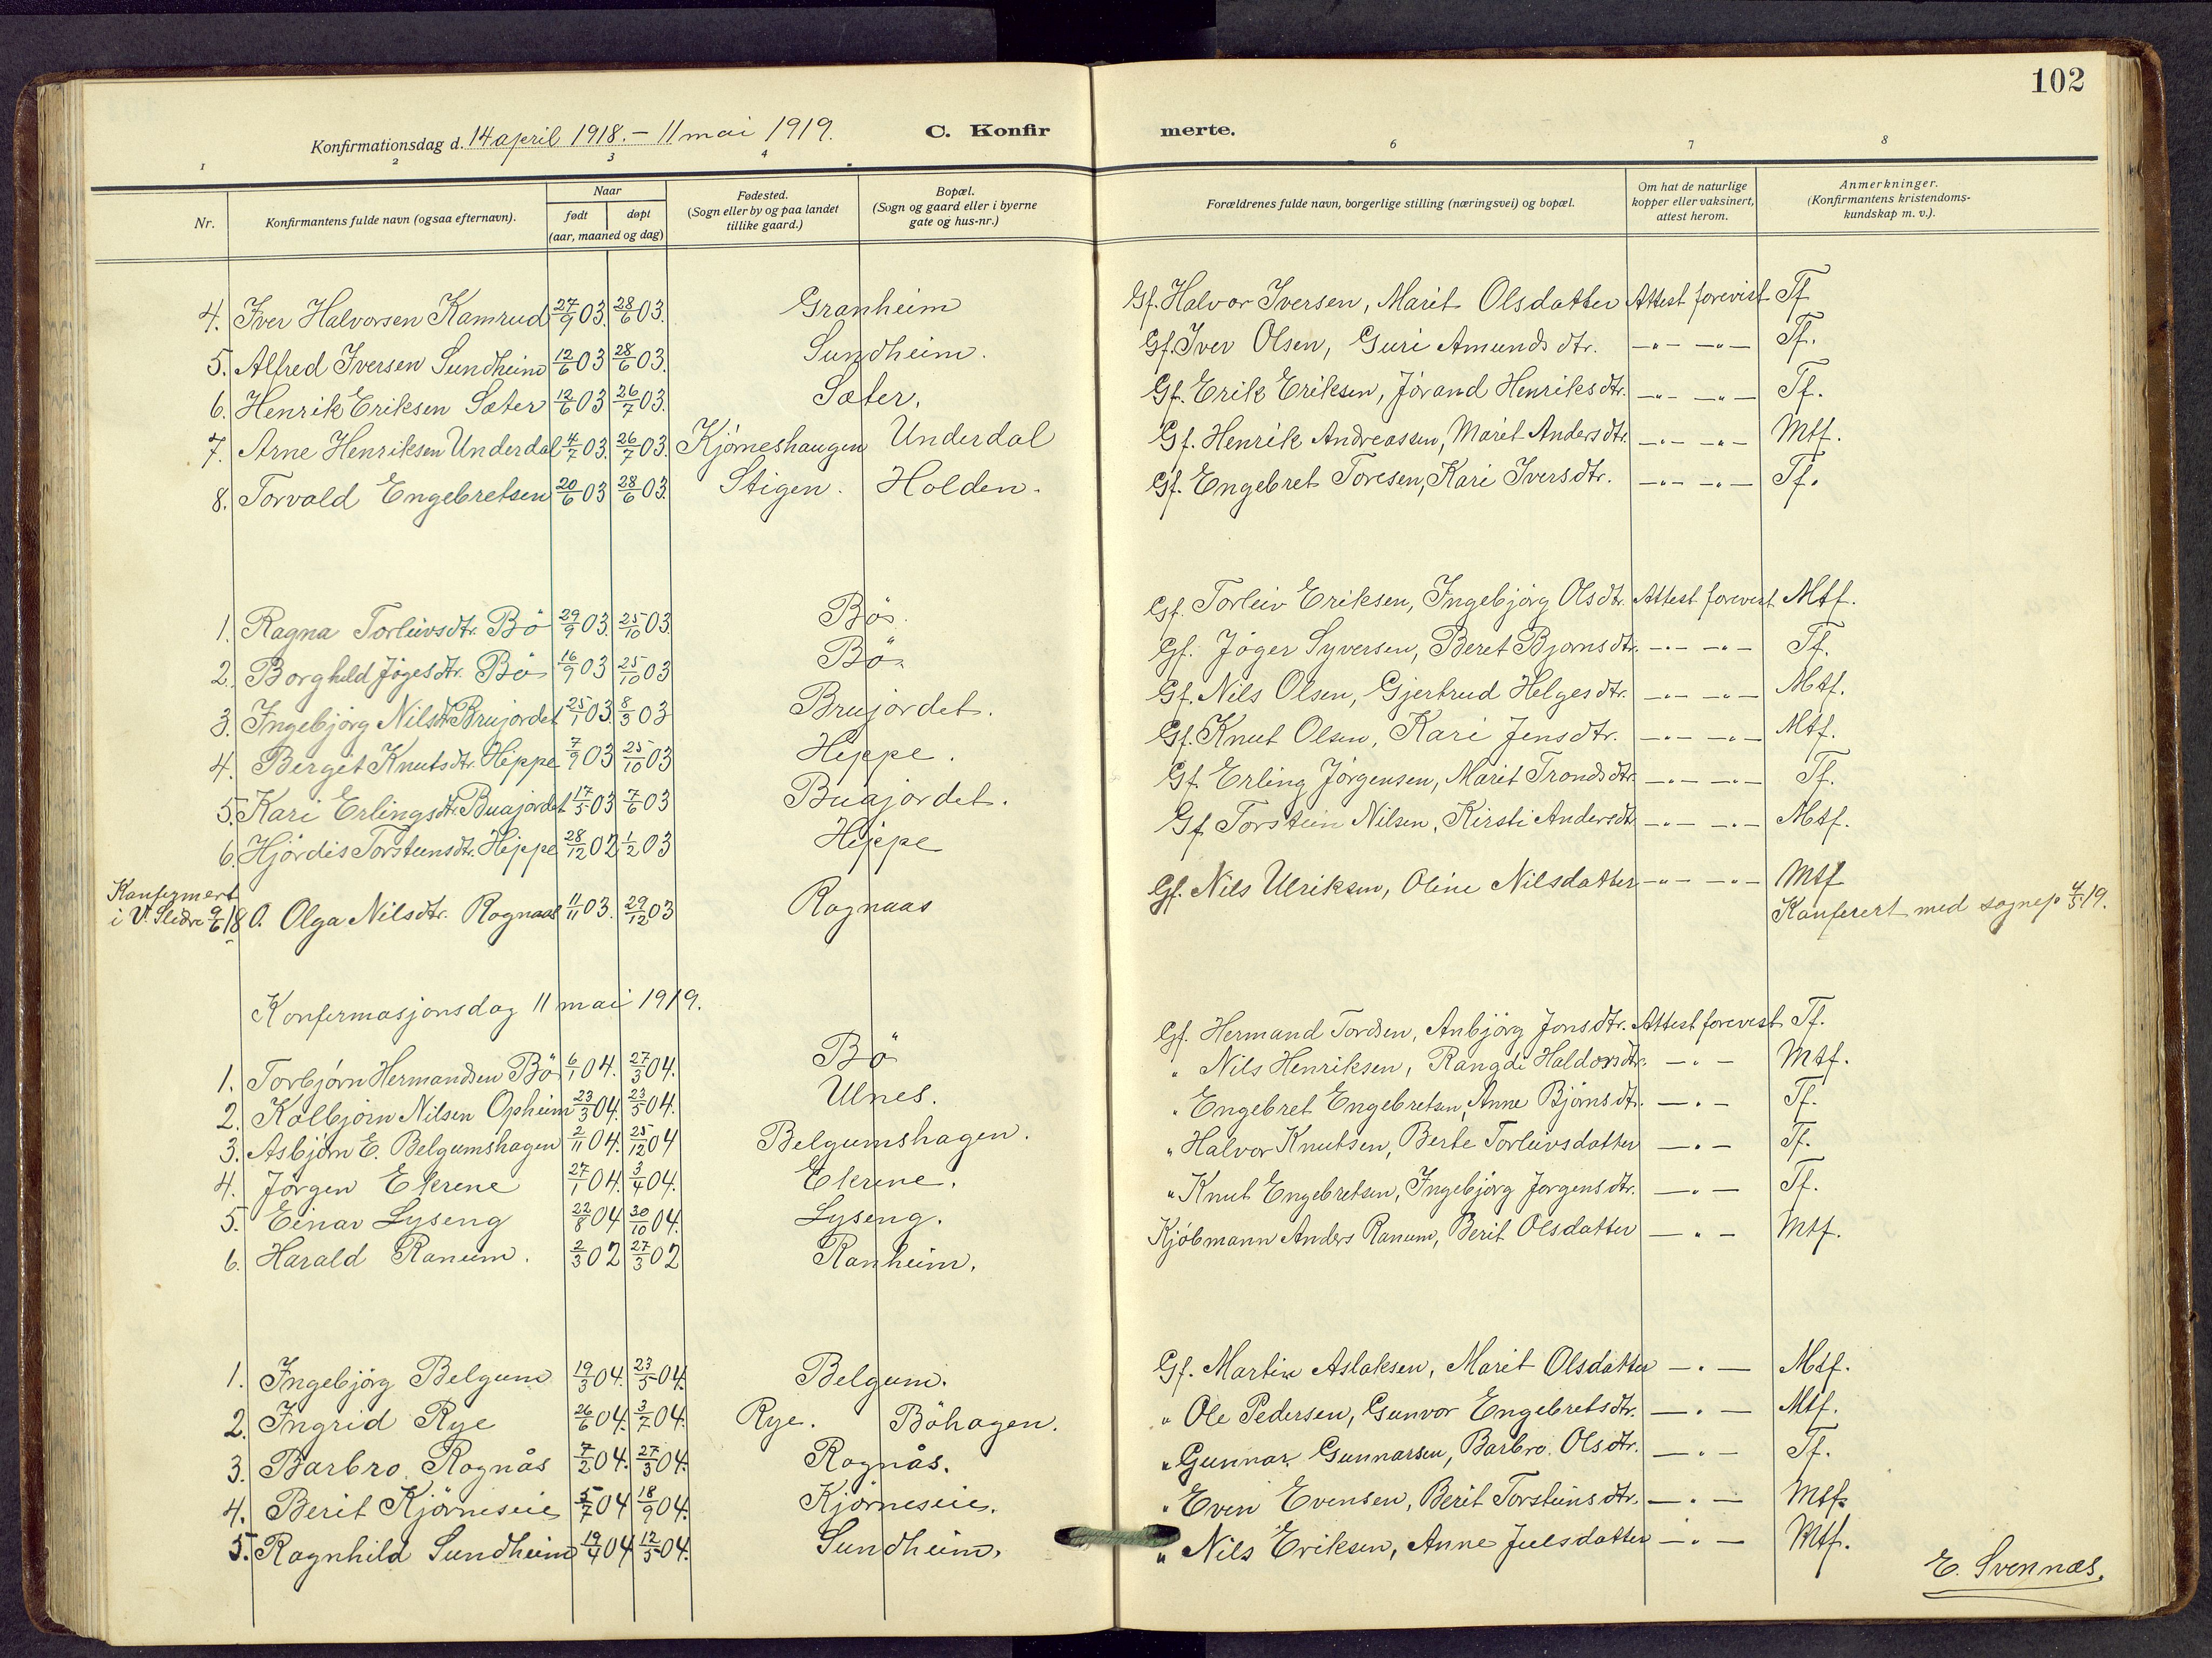 102
Konfirmationsdag d. 14 april 1918. – 11 mai 1919. C. Konfir merte.
1 2 3 4 6 7 8
Nr. Konfirmantens fulde navn (ogsaa efternavn). Naar født døpt (aar, maaned og dag) Fødested. (Sogn eller by og paa landet tillike gaard.) Bopæl. (Sogn og gaard eller i byerne gate og hus-nr.) Forældrenes fulde navn, borgerlige stilling (næringsvei) og bopæl. Om hat de naturlige kopper eller vaksinert, attest herom. Anmerkninger. (Konfirmantens kristendomskundskap m. v.).
4. Iver Halvorsen Kamrud 27/9 03. 28/6 03. Granheim Gf. Halvor Iversen, Marit Olsdatter Attest forevist Tf
5. Alfred Iversen Sundheim 12/6 03 28/6 03. Sundheim. Gf. Iver Olsen, Guri Amundsdtr. –"– –"– Tf.
6. Henrik Eriksen Sæter 12/6 03 26/7 03. Sæter. Gf. Erik Eriksen, Jörand Henriksdtr. –"– –"– Tf.
7. Arne Henriksen Underdal 4/7 03. 26/7 03. Kjörneshaugen Underdal Gf. Henrik Andreassen, Marit Andersdtr. –"– –"– Mtf.
8. Torvald Engebretsen 20/6 03 28/6 03. Stigen. Holden. Gf. Engebret Toresen, Kari Iversdtr. –"– –"– Tf.
1. Ragna Torleivsdtr. Bö 29/9 03. 25/10 03. Bö. Gf. Torleiv Eriksen, Ingebjörg Olsdtr. Attest forevist Mtf.
2. Borghild Jögesdtr. Bö 16/9 03 25/10 03 Bö. Gf. Jöger Syversen, Beret Bjornsdtr. –"– –"– Tf.
3. Ingebjörg Nilsdtr Brujordet 25/1 03. 8/3 03 Brujordet. Gf. Nils Olsen, Gjertrud Helgesdtr. –"– –"– Mtf.
4. Berget Knutsdtr. Hippe 7/9 03 25/10 03 Hippe. Gf. Knut Olsen, Kari Jensdtr. –"– –"– Mtf.
5. Kari Erlingsdtr. Buajordet 17/5 03 7/6 03 Buajordet. Gf. Erling Jörgensen, Marit Trondsdtr –"– –"– Tf.
6. Hjördis Torsteinsdtr. Hippe 28/12 02 1/2 03 Hippe Gf. Torstein Nilsen, Kirsti Andersdtr –"– –"– Mtf.
Konfirmert
i V. Slidre 9/6 18 0. Olga Nilsdtr. Rognaas 11/11 03. 29/12 03 Rognaas Gf. Nils Ulriksen, Oline Nilsdatter –"– –"– Mtf
Konferert med sognep. 4/5 19.
Konfermasjonsdag 11 mai 1919.
1. Torbjørn Hermandsen Bö 6/1 04. 27/3 04. Bö Gf. Hermand Tordsen, Anbjörg Jonsdtr. Attest forevist Tf.
2. Kolbjörn Nilsen Opheim 23/3 04. 23/5 04. Ulnes. " Nils Henriksen, Rangdi Haldorsdtr. –"– Mtf.
3. Asbjörn E. Belgumshagen 2/11 04. 25/12 04 Belgumshagen. " Engebret Engebretsen, Anne Bjönsdtr. –"– Tf.
4. Jörgen Ekrene 27/1 04. 3/4 04. Ekrene. " Halvor Knutsen, Berte Torleivsdatter –"– Tf.
5. Einar Lyseng 22/8 04 30/10 04. Lyseng. " Knut Engebretsen, Ingebjörg Jörgensdtr. –"– Tf.
6. Harald Ranum. 2/3 02 27/3 02 Ranheim. Kjöbmann Anders Ranum, Berit Olsdatter –"– Mtf.
1. Ingebjörg Belgum 19/3 04. 23/5 04. Belgum. Gf. Martin Aslaksen, Marit Olsdatter –"– Mtf.
2. Ingrid Rye 26/6 04. 3/7 04. Rye. Böhagen. " Ole Pedersen, Gunvor Engebretsdtr. –"– Mtf.
3. Barbro Rognås 7/2 04. 27/3 04. Rognås. " Gunnar Gunnarsen, Barbro Olsdtr. –"– Tf.
4. Berit Kjörneseie 5/7 04 18/9 04. Kjörneseie. " Even Evensen, Berit Torsteinsdtr. –"– Mtf.
5. Ragnhild Sundheim 19/4 04 12/5 04. Sundheim. " Nils Eriksen, Anne Juelsdatter –"– Mtf.
E. Svennæs.